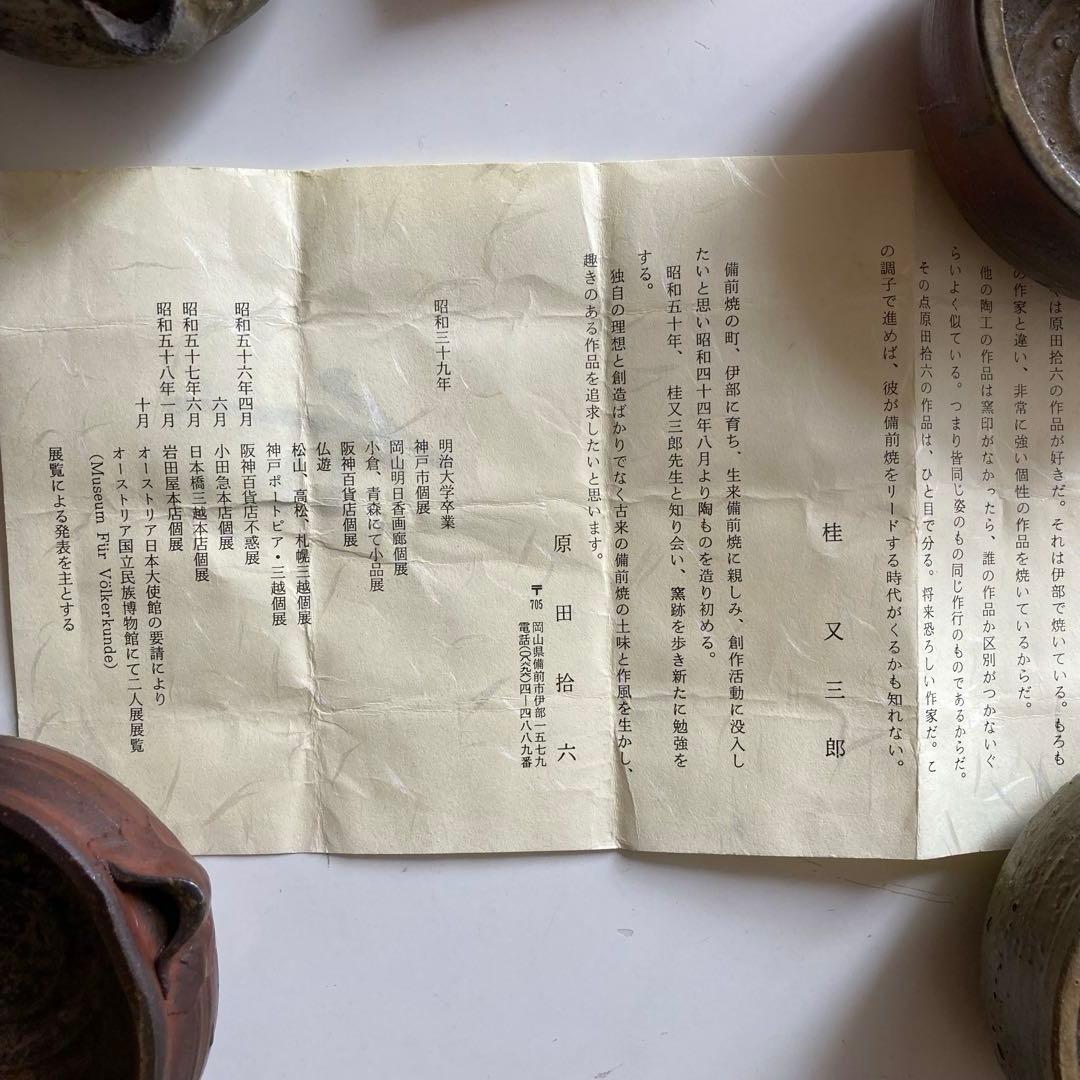 くは原田拾六の作品が好きだ。それは伊部で焼いている。もろも
の作家と違い、非常に強い個性の作品を焼いているからだ。
他の陶工の作品は窯印がなかったら、誰の作品か区別がつかないぐ
らいよく似ている。つまり皆同じ姿のもの同じ作行のものであるからだ。
その点原田拾六の作品は、ひと目で分る。将来恐ろしい作家だ。こ
の調子で進めば、彼が備前焼をリードする時代がくるかも知れない。
桂又三郎
備前焼の町、伊部に育ち、生来備前焼に親しみ、創作活動に没入し
たいと思い昭和四十四年八月より陶ものを造り初める。
昭和五十年、桂又三郎先生と知り会い、窯跡を歩き新たに勉強を
する。
独自の理想と創造ばかりでなく古来の備前焼の土味と作風を生かし、
趣きのある作品を追求したいと思います。
原田拾六
〒705 岡山県備前市伊部一五七九
電話(〇八六九六)四―四八八九番
昭和三十九年 明治大学卒業
神戸市個展
岡山明日香画廊個展
小倉、青森にて小品展
阪神百貨店個展
仏遊
松山、高松、札幌三越個展
神戸ポートピア・三越個展
昭和五十六年四月 阪神百貨店不惑展
六月 小田急本店個展
昭和五十七年六月 日本橋三越本店個展
昭和五十八年一月 岩田屋本店個展
十月 オーストリア日本大使館の要請により
オーストリア国立民族博物館にて二人展展覧
(Museum Für Völkerkunde)
展覧による発表を主とする